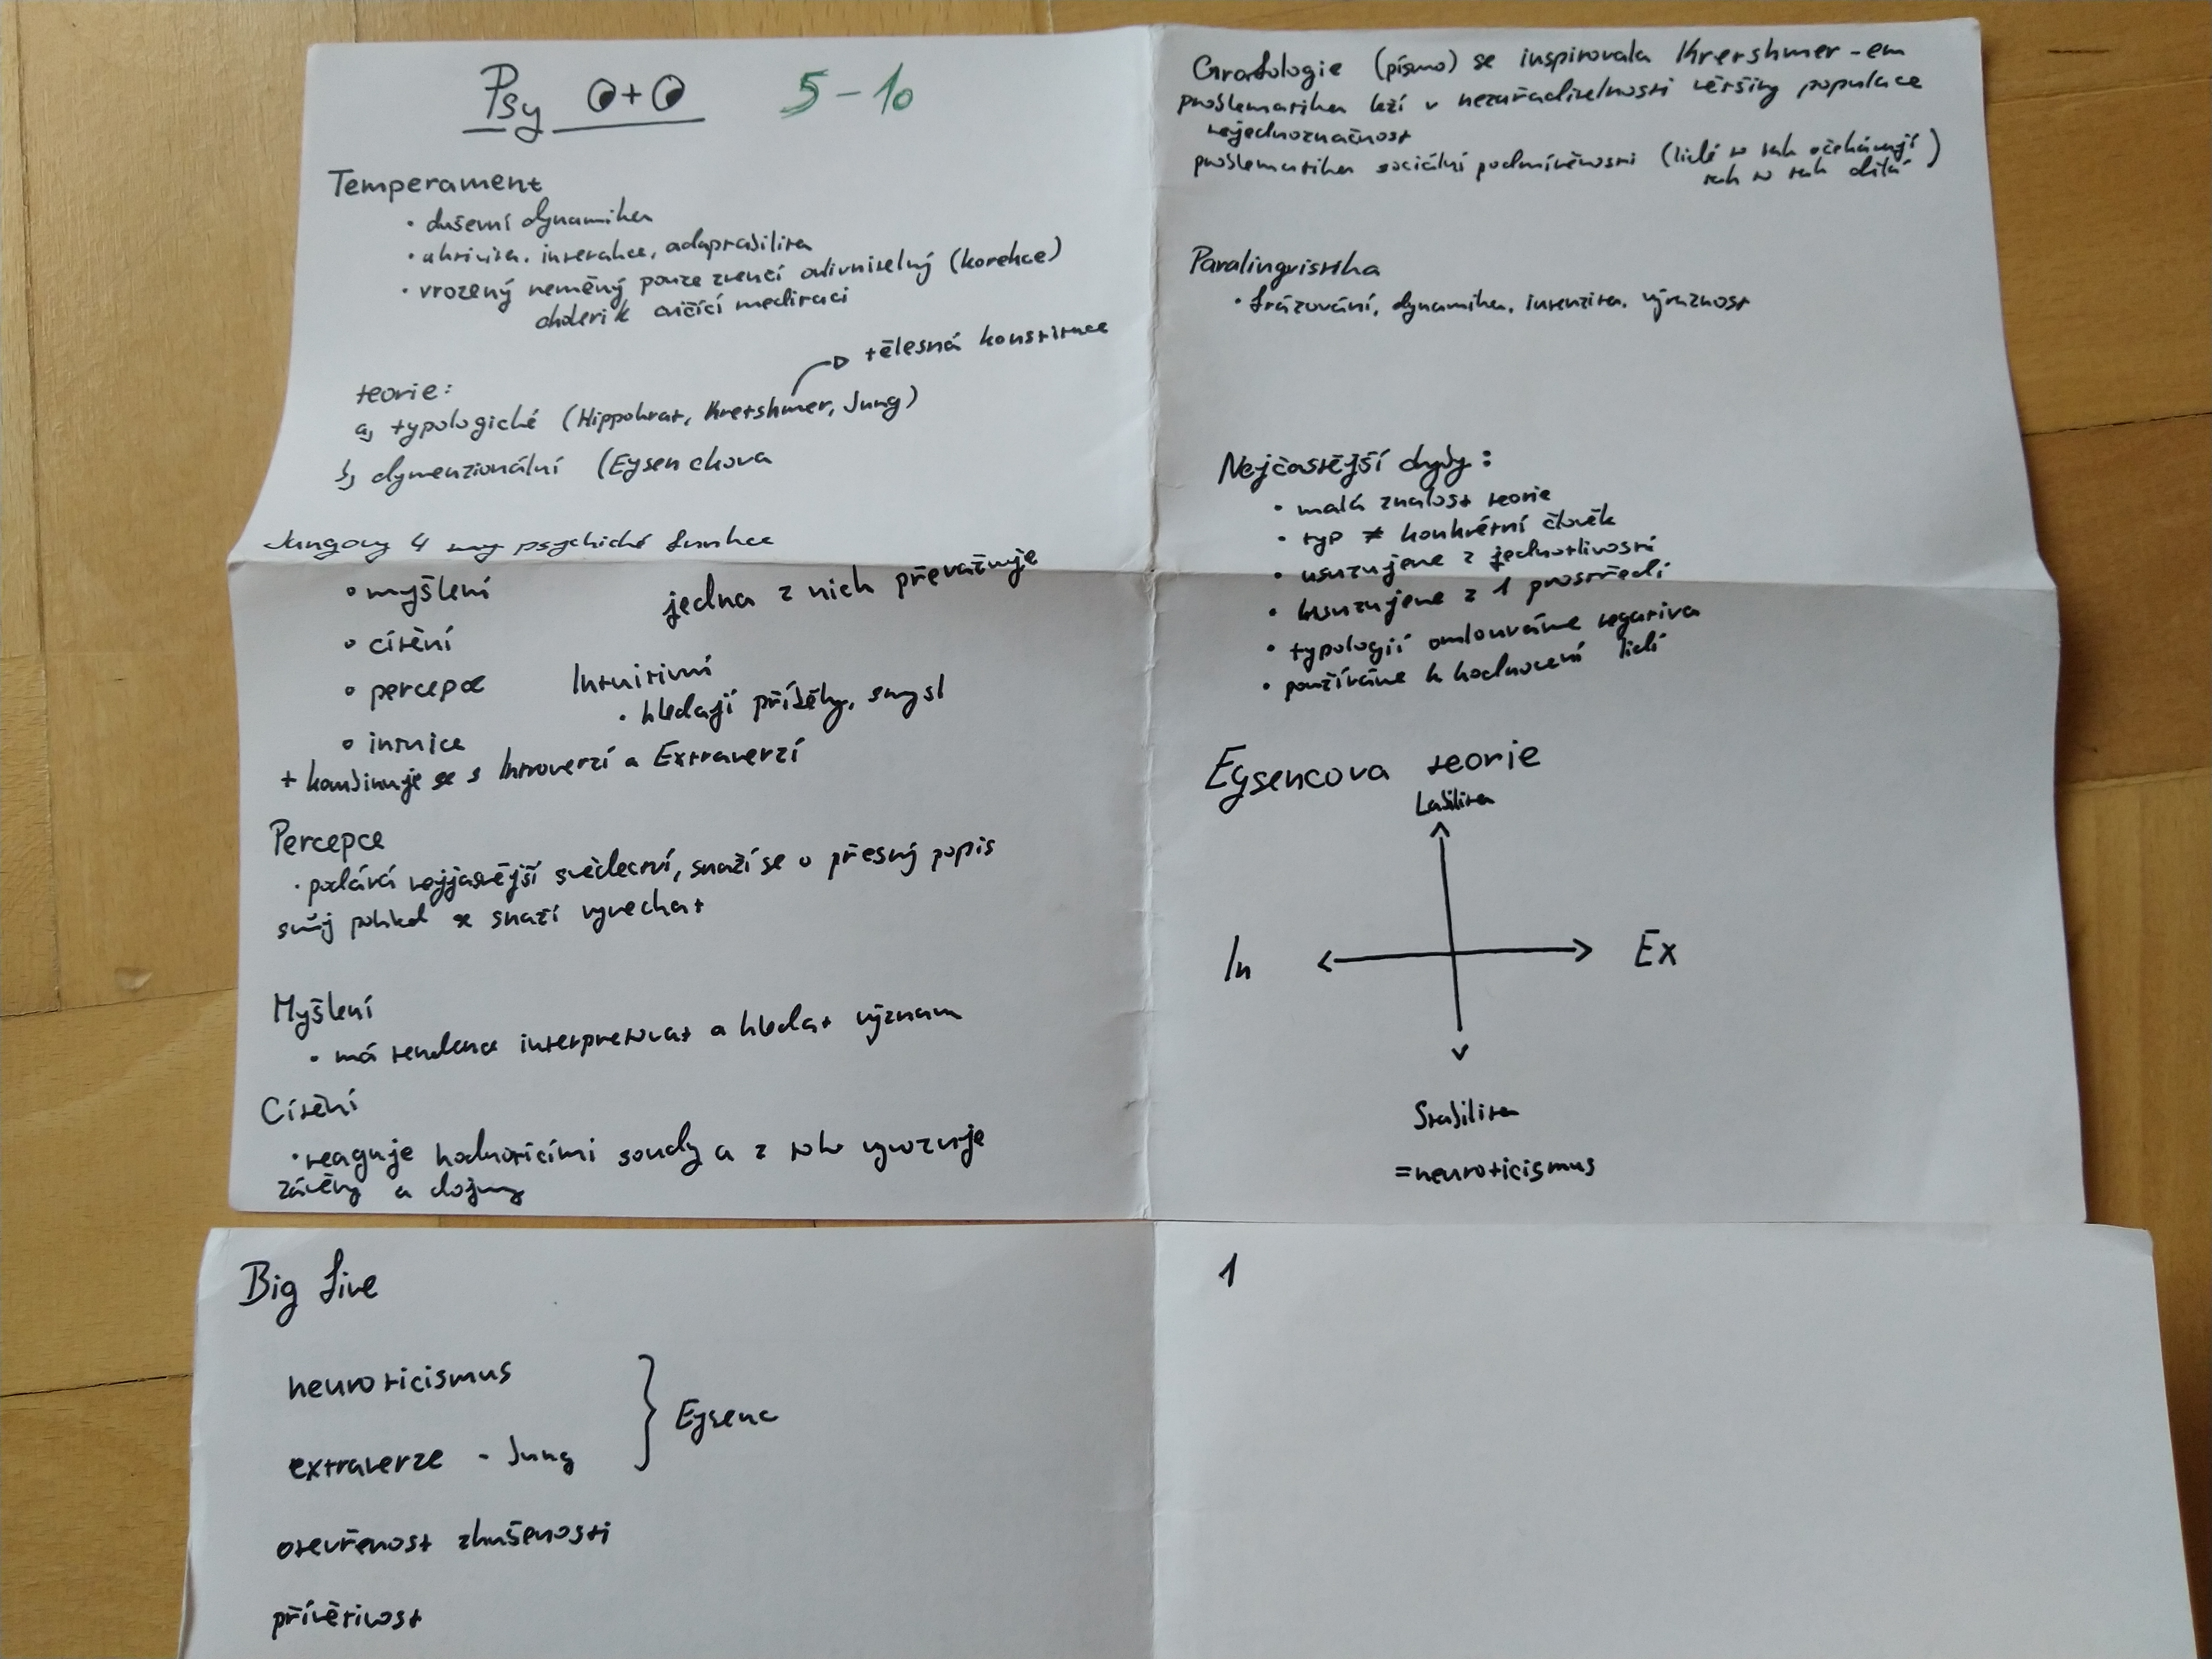 Psy 5-10
Temperament
• duševní dynamika
• aktivita, interakce, adaptabilita
• vrozený neměný pouze zvenčí ovlivnitelný (korekce)
cholerik cvičící meditaci
tělesná konstituce
teorie:
a, typologické (Hippokrat, Kretshmer, Jung)
b, dymenzionální (Eysenckova
Jungovy 4 psychické funkce
• myšlení
jedna z nich převažuje
• cítění
• percepce
Intuitivní
• hledají příběhy, smysl
• intuice
+ kombinuje se s Introverzí a Extraverzí
Percepce
• podává nejjasnější svědectví, snaží se o přesný popis
svůj pohled se snaží vynechat
Myšlení
• má tendence interpretovat a hledat význam
Cítění
• reaguje hodnotícími soudy a z toho vyvozuje
závěry a dojmy
Grafologie (písmo) se inspirovala Krershmer-em
problematika leží v nezařaditelnosti většiny populace
nejednoznačnost
problematika sociální podmíněnosti (lidé to tak očekávají
tak to tak dělá)
Paralingvistika
• frázování, dynamika, intenzita, výraznost
Nejčastější chyby:
• malá znalost teorie
• typ ≠ konkrétní člověk
• usuzujeme z jednotlivostí
• usuzujeme z 1 prostředí
• typologií omlouváme negativa
• používáme k hodnocení lidí
Eysencova teorie
Labilita
In Ex
Stabilita
=neuroticismus
Big five
neuroticismus
Eysenc
extraverze - Jung
otevřenost zkušenosti
přívětivost
1